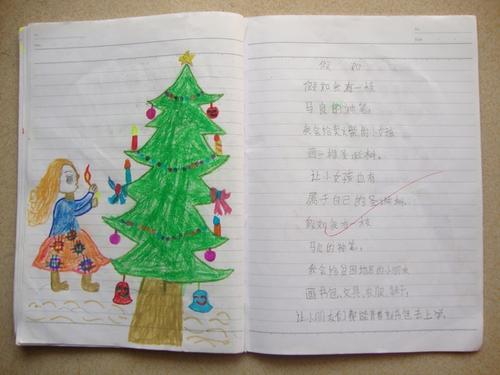 假 如
假如我有一枝
马良的神笔,
我会给卖火柴的小女孩
画一棵圣诞树。
让小女孩也有
属于自己的圣诞树。
假如我有一枝
马良的神笔,
我会给贫困地区的小朋友
画书包、文具、衣服、鞋子,
让小朋友们都能背着书包去上学。